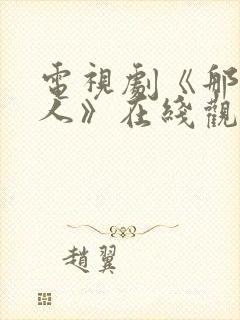 電視劇《那
人》在綫觀
趙翼